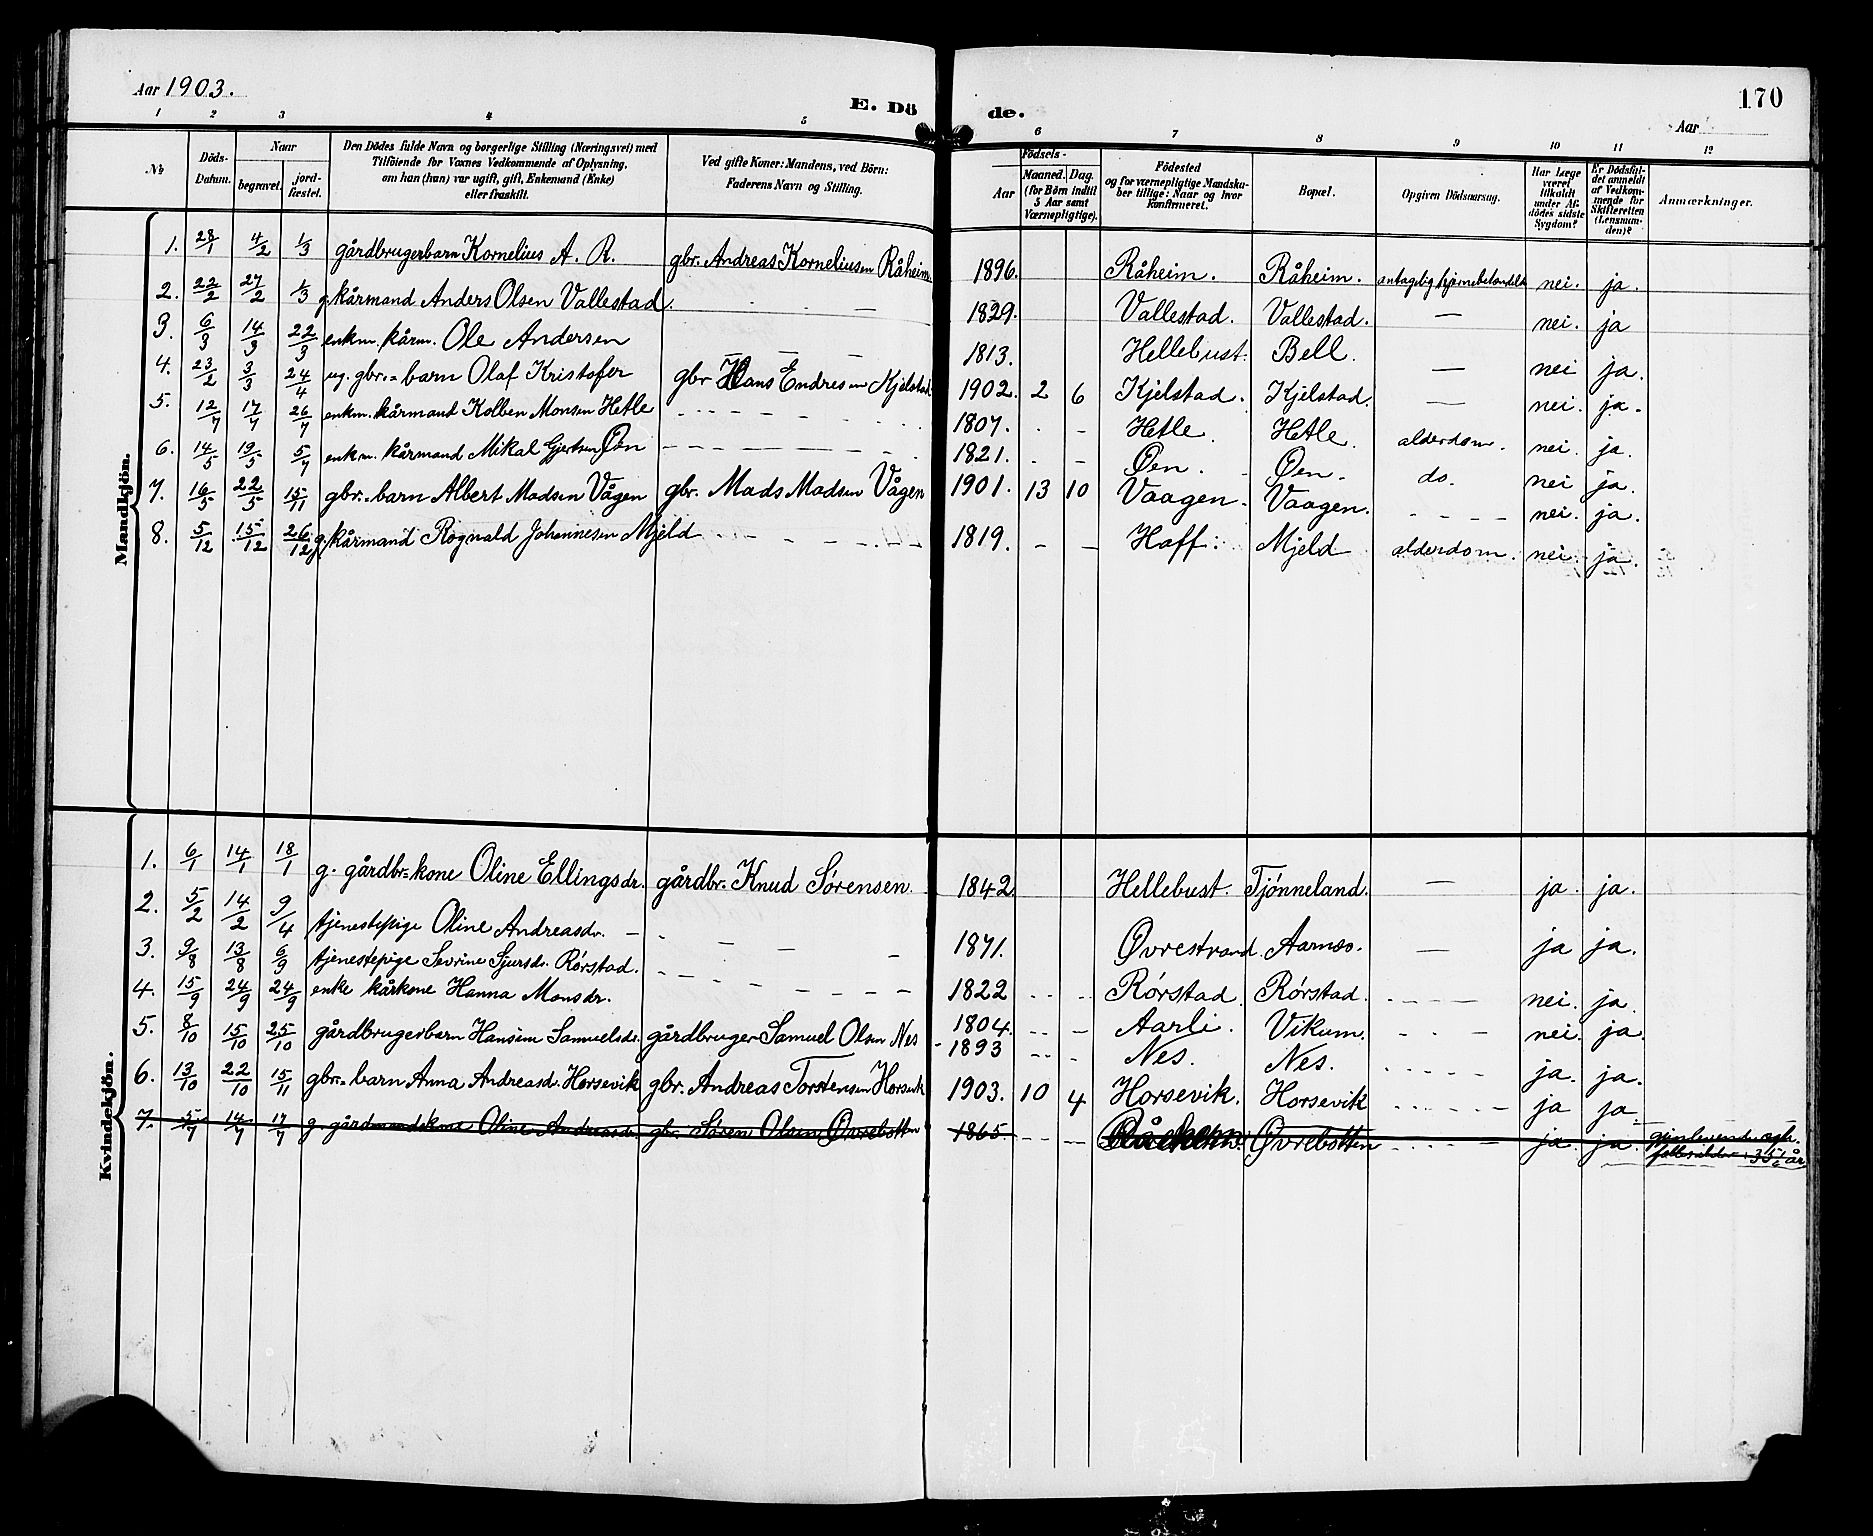 Aar 1903.
E. Dö de.
170
Aar
1 2 3 4 5 6 7 8 9 10 11 12
No
Döds-Datum.
Naar
begravet.
jord-fæstet.
Den Dödes fulde Navn og borgerlige Stilling (Næringsvei) med
Tilföiende for Voxnes Vedkommende af Oplysning,
om han (hun) var ugift, gift, Enkemand (Enke)
eller fraskilt.
Ved gifte Koner: Mandens, ved Börn:
Faderens Navn og Stilling.
Födsels-
Aar
Maaned. Dag.
(for Börn indtil
5 Aar samt
Værnepligtige).
Födested
og for værnepligtige Mandska-
ber tillige: Naar og hvor
konfirmeret.
Bopæl.
Opgiven Dödsaarsag.
Har Læge
været
tilkaldt
under Af-
dödes sidste
Sygdom?
Er Dödsfal-
det anmeldt
af Vedkom-
mende for
Skifteretten
(Lensman-
den)?
Anmærkninger.
Mandkjön.
1. 28/1 4/2 1/3 gårdbrugerbarn Kornelius A. R. gbr. Andreas Korneliusen Råheim 1896. Råheim. Råheim. antagelig hjernebetændelse nei. ja.
2. 22/2 27/2 1/3 g. kårmand Anders Olsen Vallestad. — 1829. Vallestad. Vallestad. — nei. ja
3. 6/3 14/3 22/3 enkm. kårm. Ole Andersen — — — 1813. Hellebust. Bell. — nei ja.
4. 23/2 3/3 24/4 ug. gbr.=barn Olaf Kristofer gbr Hans Endresen Kjelstad 1902. 2 6 Kjelstad. Kjelstad. — nei. ja.
5. 12/7 17/7 26/7 enkm. kårmand Kolben Monsen Hetle 1807. Hetle. Hetle. alderdom. nei. ja.
6. 14/5 19/5 5/7 enkm. kårmand Mikal Gjertsen Øen 1821. Øen. Øen. do. nei ja.
7. 16/5 22/5 15/11 gbr.=barn Albert Madsen Vågen gbr. Mads Madsen Vågen 1901. 13 10 Vaagen. Vaagen. nei. ja.
8. 5/12 15/12 26/12 g. kårmand Rognald Johannesen Mjeld 1819. — — Hoff. Mjeld alderdom. nei. ja.
Kvindekjön.
1. 6/1 14/1 18/1 g. gårdbr=kone Oline Ellingsdr. gårdbr. Knud Sørensen. 1842. Hellebust. Tjønneland. — ja. ja.
2. 5/2 14/2 9/4 tjenestepige Oline Andreasdr. 1871. Øvrestrand. — ja ja.
3. 9/8 13/8 6/9 tjenestepige Sevrine Sjursdr. Rørstad. 1822 Rørstad. Rørstad. nei. ja.
4. 15/9 24/9 24/9 enke kårkone Hanna Monsdr. 1804. Aarli. Vikum. nei. ja.
5. 8/10 15/10 25/10 gårdbrugerbarn Hansine Samuelsdr. gårdbruger Samuel Olsen Nes 1893 Nes. Nes. ja. ja.
6. 13/10 22/10 15/11 gbr.=barn Anna Andreasd. Horsevik gbr. Andreas Torstensen Horsevik 1903. 10 4 Horsevik. Horsevik ja ja
7. 5/7 14/7 17/7 g. gårdmandskone Oline Andreasdr. gbr. Søren Olsen Øvrebotten 1865 Øvrebotten ja. ja.